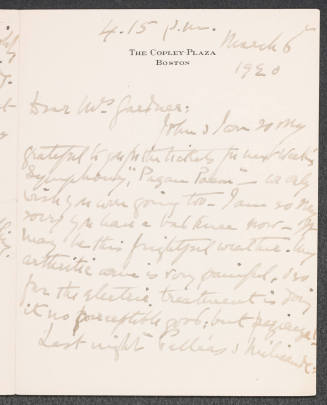 4.15 p.m.
THE COPLEY-PLAZA
BOSTON
March 6
1920
Dear Mrs Gardner:
John & I are so very
grateful to you for the tickets for next week's
Symphony, "Pagan Poem" — we only
wish you were going too — I am so very
sorry you have a bad knee now —
may be this frightful weather. My
arthritic is very painful, & so
far the electric treatment is doing
it no perceptible good; but patience!
Last night Pelléas & Mélisande